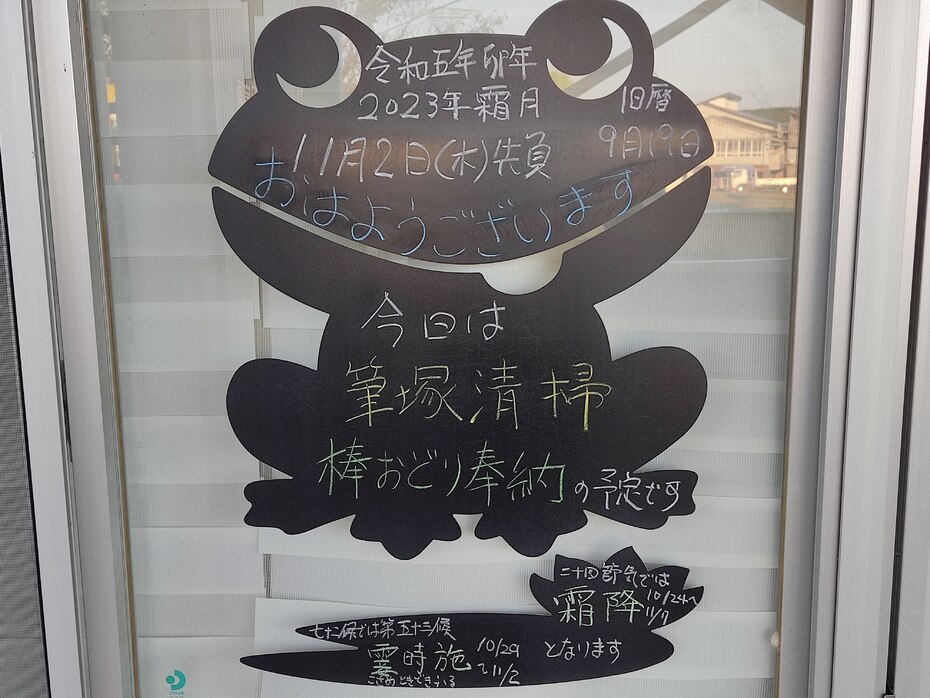 令和五年卯年
2023年霜月
旧暦
9月19日
11月2日(木)先負
おはようございます
今日は
筆塚清掃
棒おどり奉納の予定です
二十四節気では
霜降 10/24〜
11/7
七十二候では第五十三候
霎時施 10/29
〜11/2
こさめときどきふる
となります